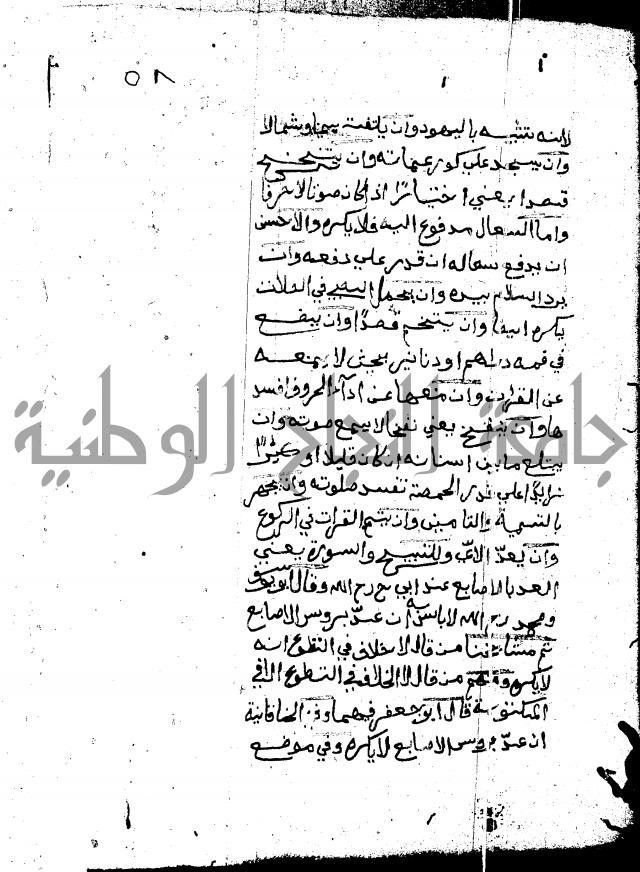 ٥٨
لانه تشبه باليهود وان يلتفت يمينا وشمالا
وان يسجد علي كور عمامته وان يتنحنح
قصدا يعني اختيارًا اذا كان صوتا لاحرفا
واما السعال مدفوع اليه فلا يكره والاحسن
ان يدفع سعاله ان قدر علي دفعه وان
يرد السلام بيده وان يحمل الصبي في الصلات
يكره ايضا وان يتنخم قصدًا وان يضع
في فمه دراهم او دنانير بحيث لا يمنعه
عن القرات وان منعها عن اداء الحروف افسد
ها وان ينفخ يعني نفخا لا يسمع صوته وان
يبتلع ما بين اسنانه ان كان قليلا وان كثيرًا
زايدًا علي قدر الحمصة تفسد صلوته وان يجهر
بالتسمية والتامين وان يتم القرات في الركوع
وان يعدّ الاي والتسبيح والسورة يعني
العد بالاصابع عند ابي ح رح الله وقال ابو يوسف
ومحمد رح الله لا باس به ان عدّ بروس الاصابع
ثم مشائخنا من قال لا خلاف في التطوع انه
لا يكره ومنهم من قال لا الخلاف في التطوع انه في
المكتوبة قال ابو جعفر فيهما وفي الخاقانية
ان عدّ بروس الاصابع لا يكره وفي موضع
جامعة النجاح الوطنية